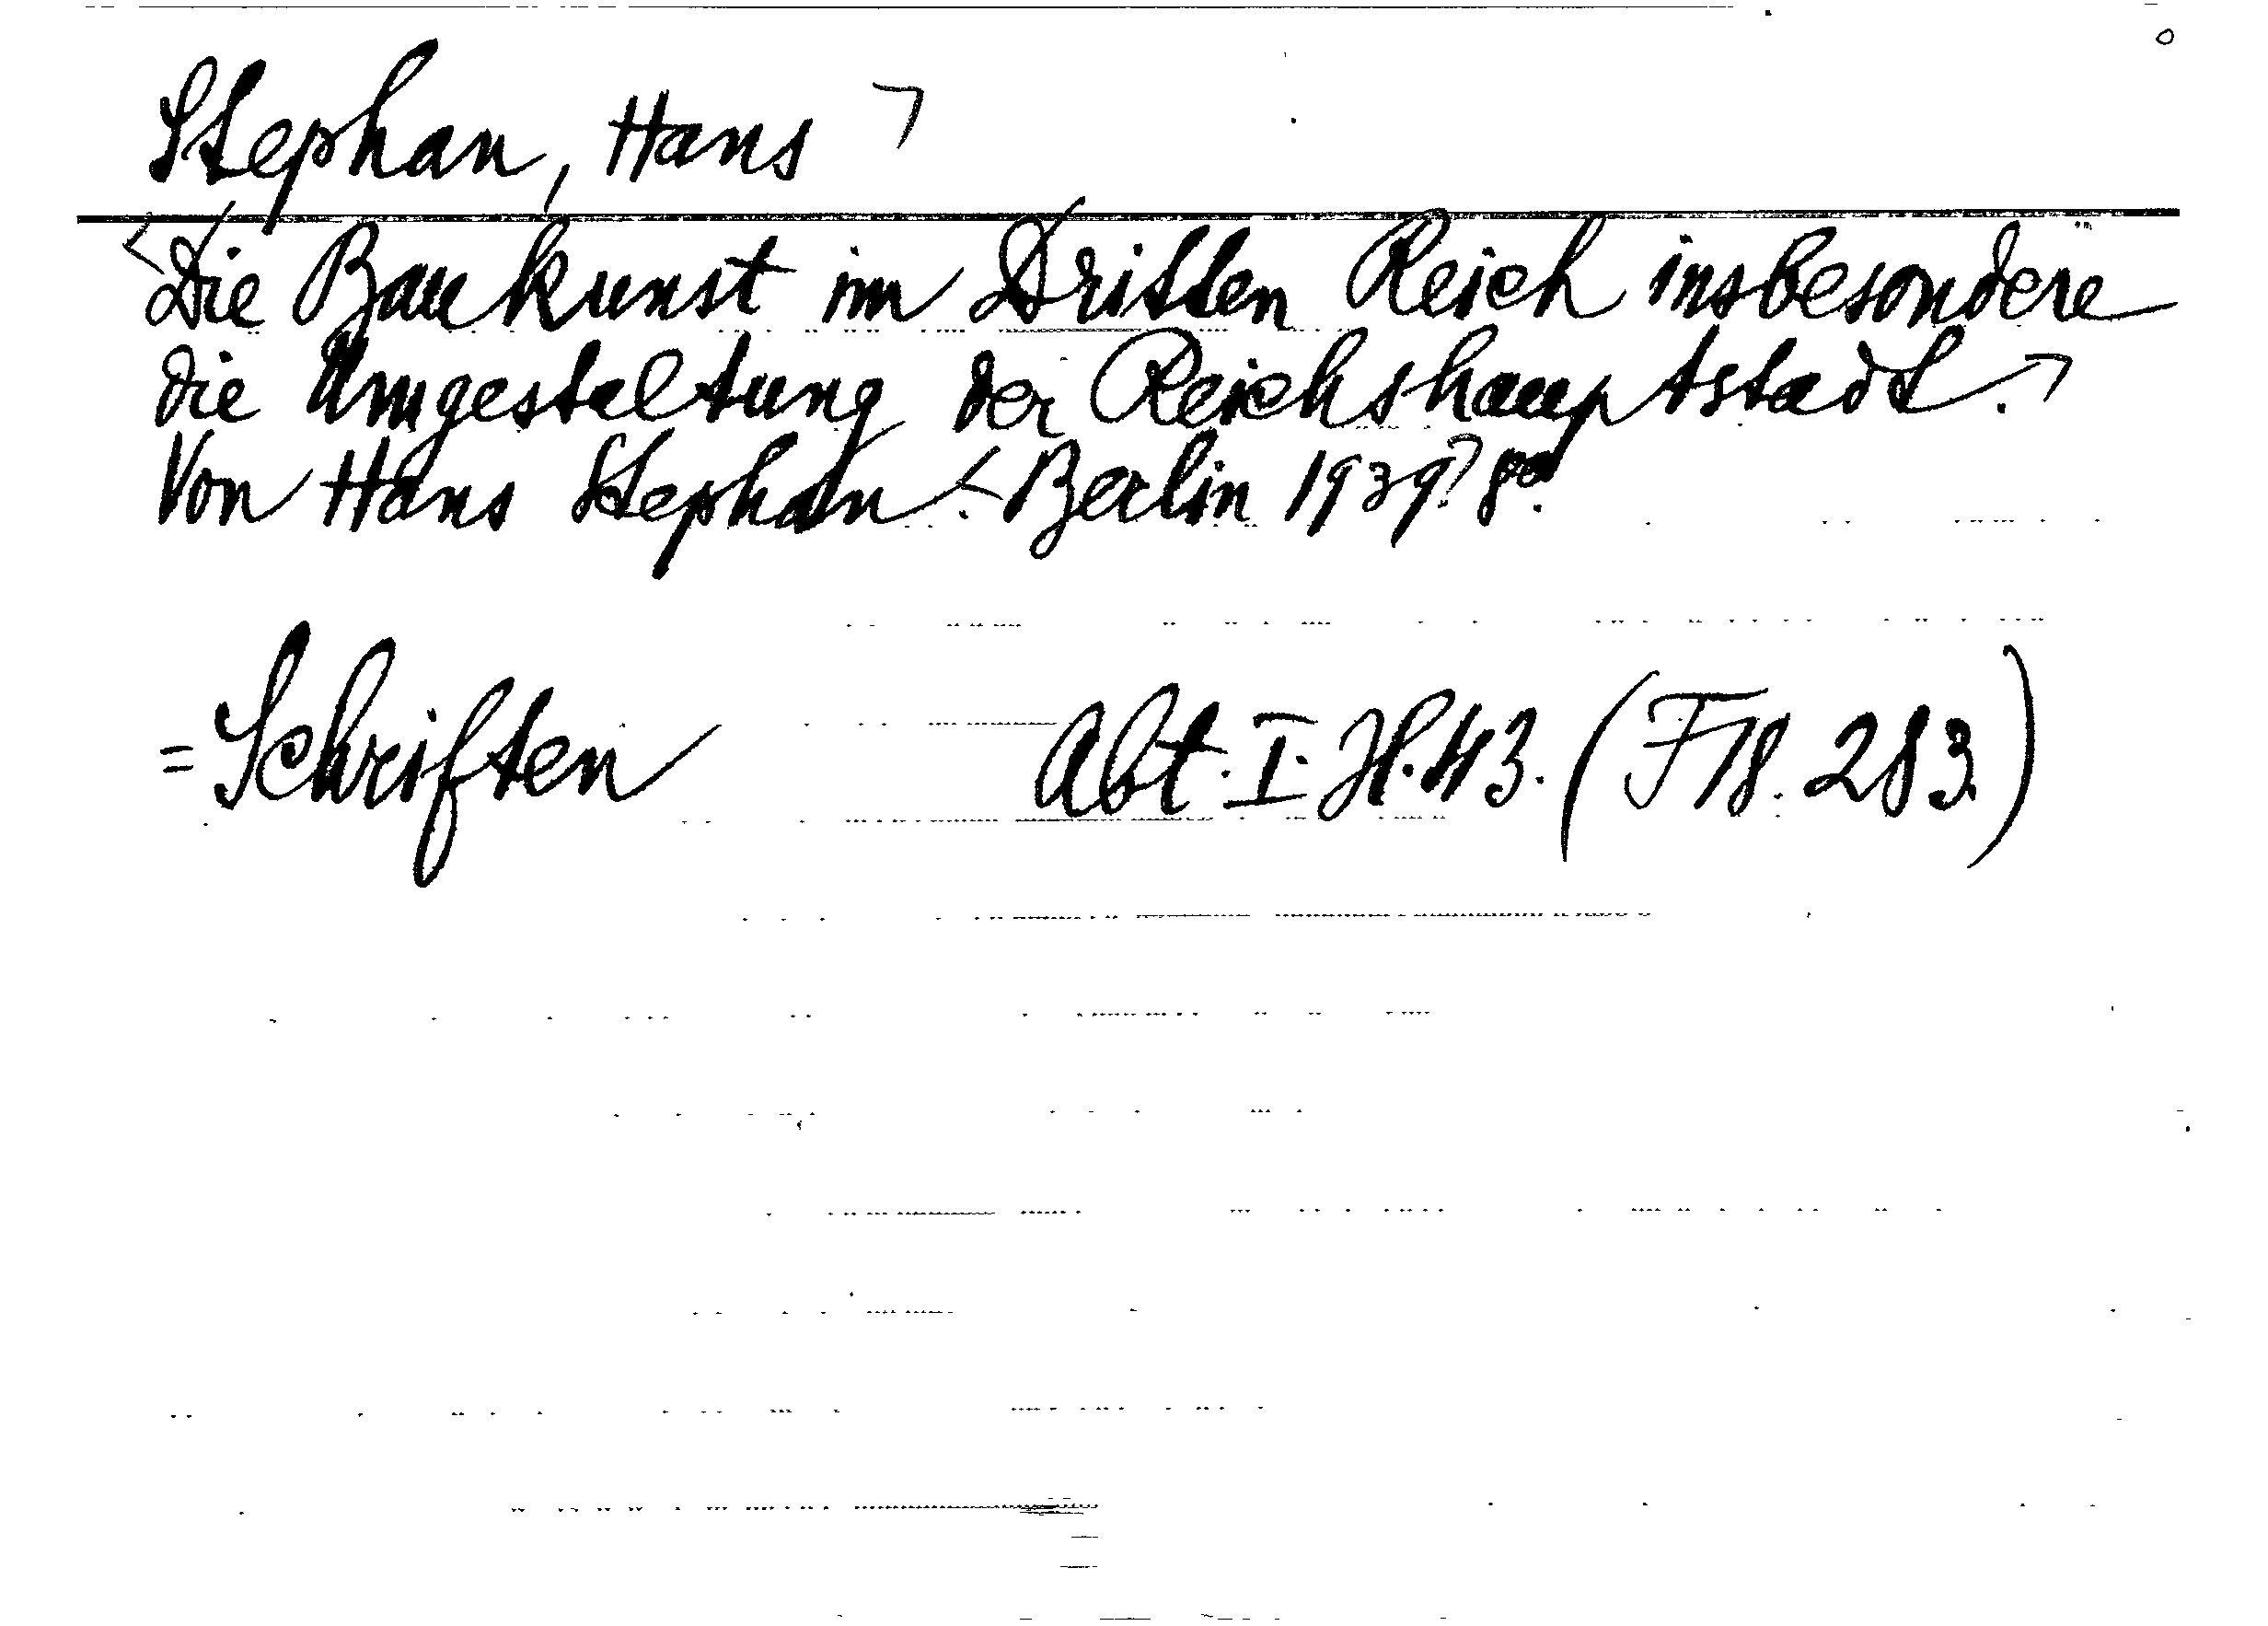 Stephan, Hans
Die Baukunst im Dritten Reich insbesondere
die Umgestaltung der Reichshauptstadt.
Von Hans Stephan. Berlin 1939? 8°.
= Schriften Abt. I. H. 43. (F 18. 283.)